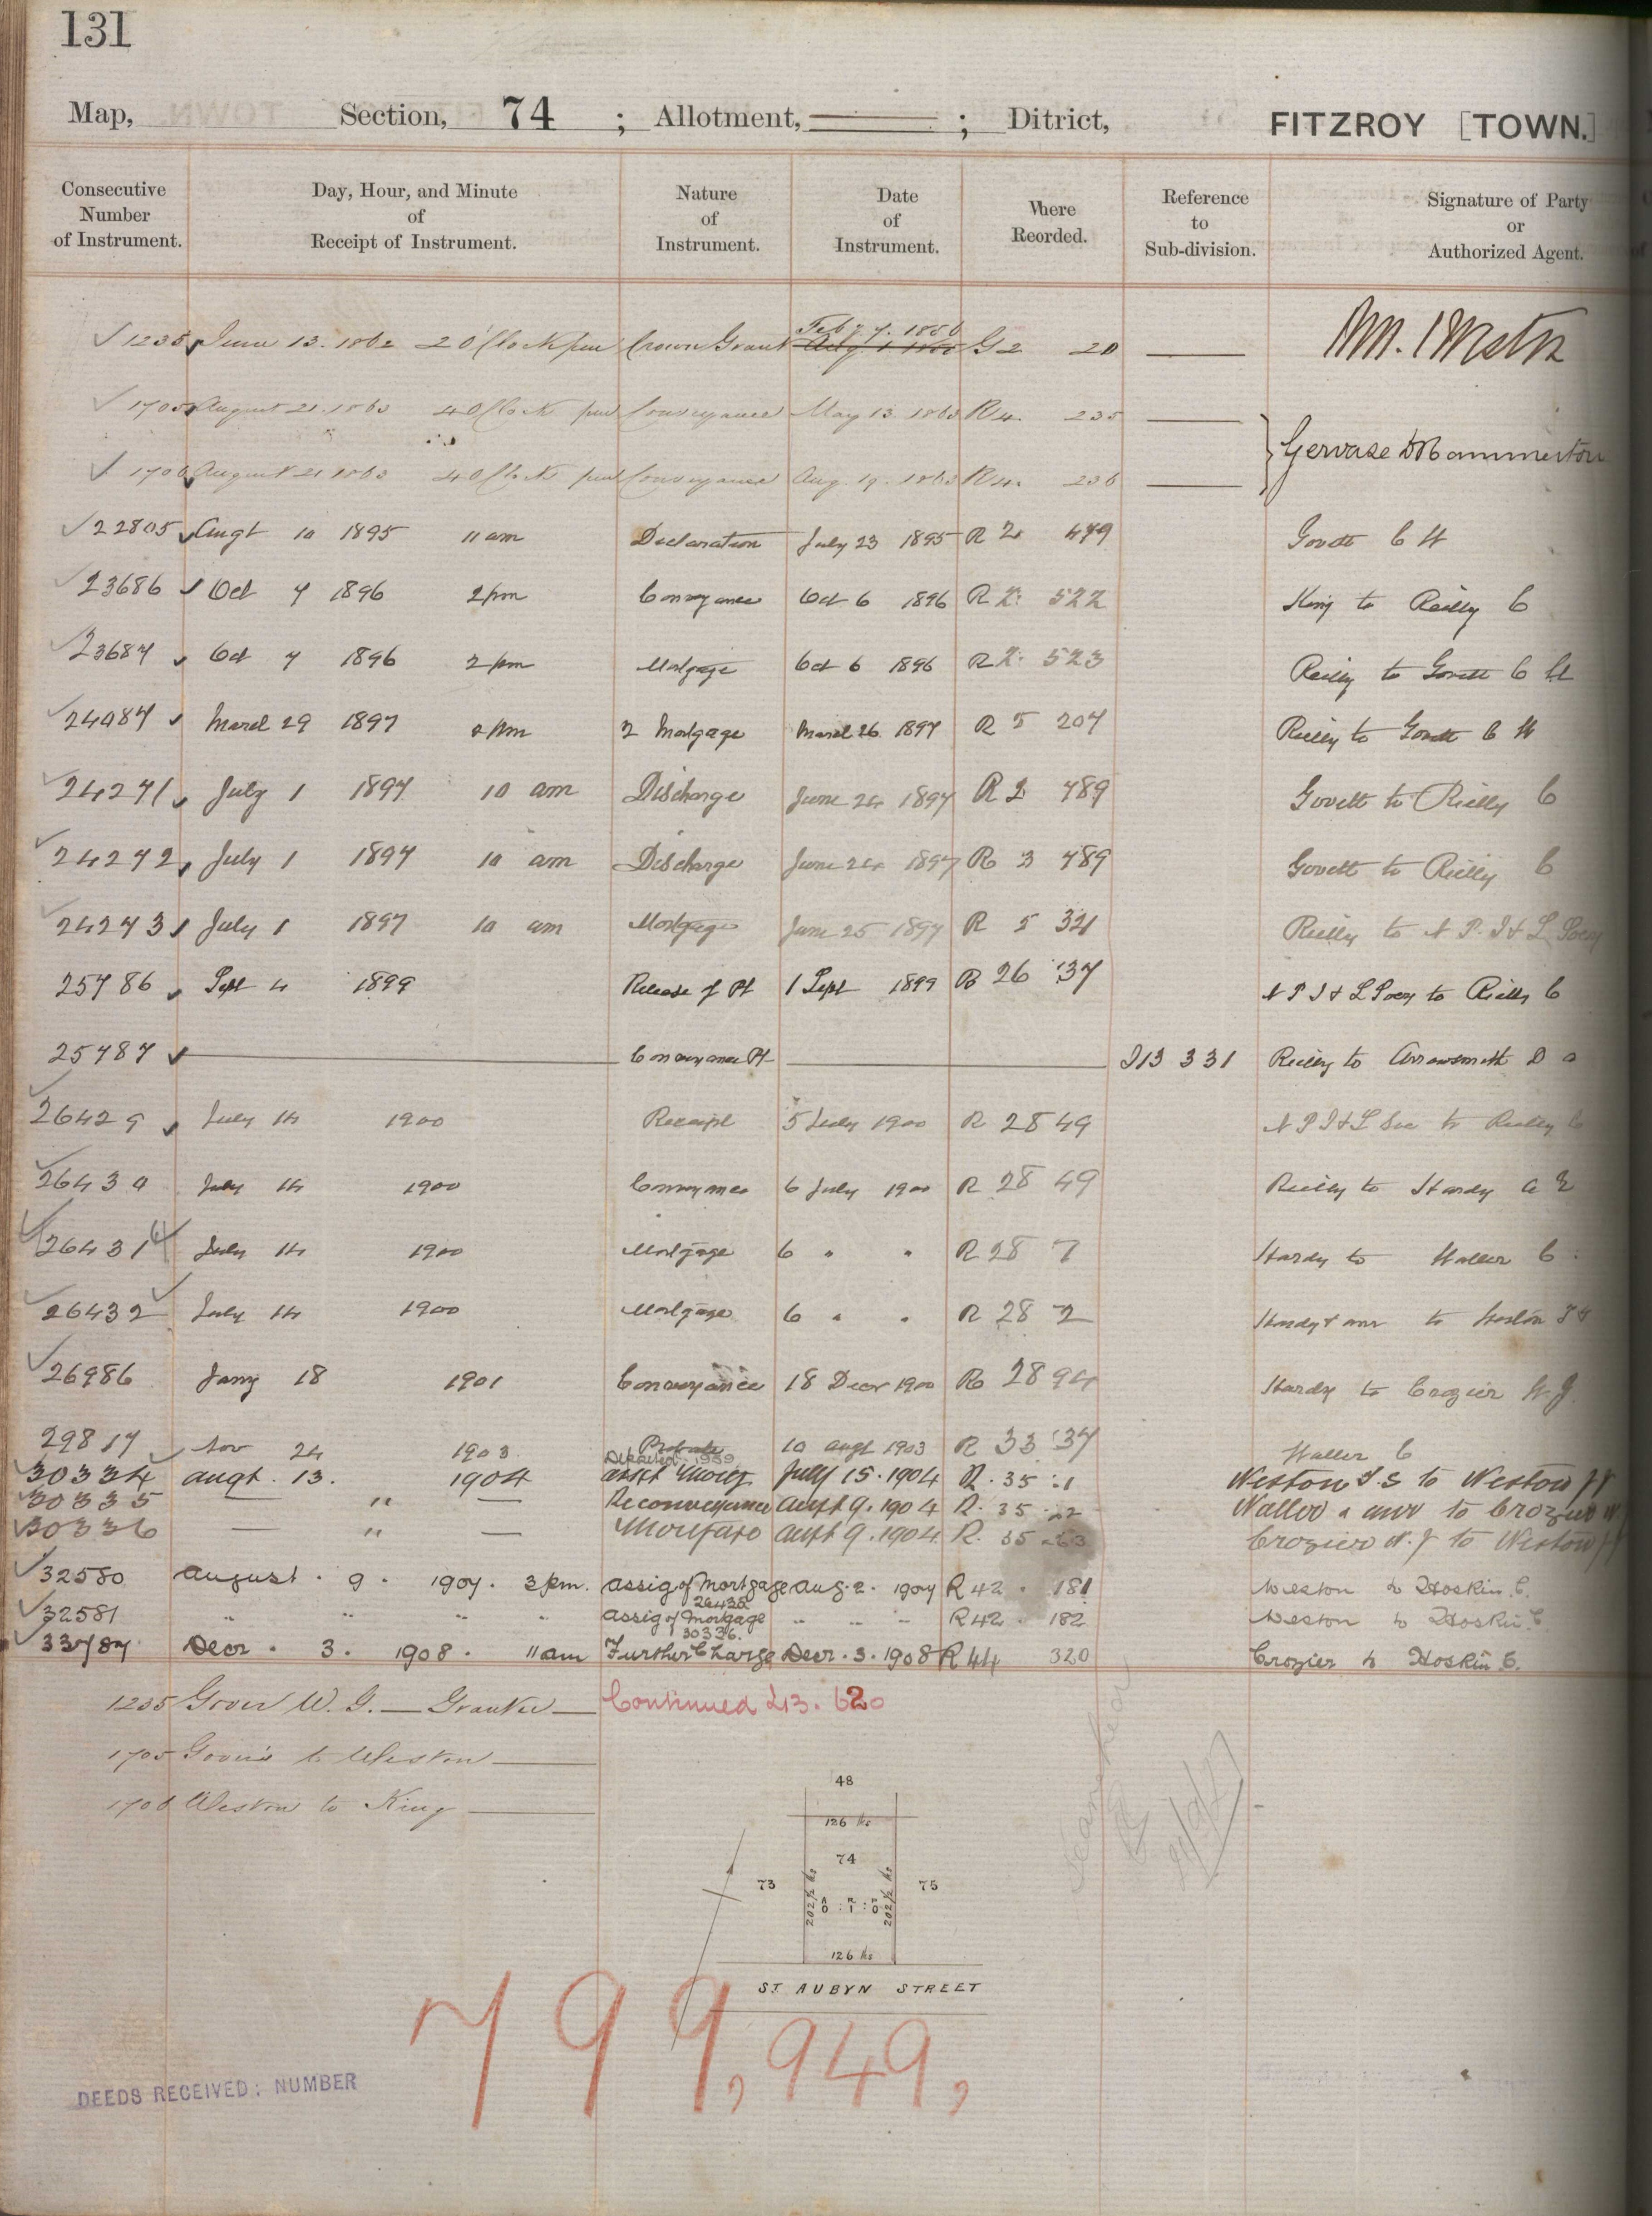 131
Map, Section, 74 ; Allotment, ; Ditrict, FITZROY [TOWN.]
Consecutive Number of Instrument. Day, Hour, and Minute of Receipt of Instrument. Nature of Instrument. Date of Instrument. Where Reorded. Reference to Sub-division. Signature of Party or Authorized Agent.
Feby. 7. 1856
1235 June 13. 1862 2 O'Clock pm Crown Grant G 2 20
1705 August 21. 1863 4 O'Clock pm Conveyance May 13. 1863 R 4. 235
Gervase D Hammerton
1706 August 21 1863 4 O'Clock pm Conveyance Aug. 19. 1863 R 4. 236
22805 Augt 10 1895 11 am Declaration July 23 1895 R 21 479 Govett C H
23686 Oct 7 1896 2 pm Conveyance Oct 6 1896 R 522 King to Reilly C
23687 Oct 7 1896 2 pm Mortgage Oct 6 1896 R 523 Reilly to Govett C H
24087 March 29 1897 2 pm 2 Mortgage March 26 1897 R 5 207 Rielly to Govett C H
24271 July 1 1897 10 am Discharge June 24 1897 R 2 789 Govett to Rielly C
24272 July 1 1897 10 am Discharge June 24 1897 R 3 789 Govett to Rielly C
24273 July 1 1897 10 am Mortgage June 25 1897 R 5 321 Rielly to N P. I & L Socy
25786 Sept 4 1899 Release of Pt 1 Sept 1899 R 26 37 N P I & L Socy to Rielly C
25787 Conveyance Pt I13 331 Rielly to Arrowsmith D
26429 July 14 1900 Receipt 5 July 1900 R 28 49 N P I & L Soc to Rielly C
26430 July 14 1900 Conveyance 6 July 1900 R 28 49 Rielly to Hardy A E
26431 July 14 1900 Mortgage 6 " " R 28 7 Hardy to Waller C
26432 July 14 1900 Mortgage 6 " " R 28 2 Hardy & anr to
26986 Jany 18 1901 Conveyance 18 Decr 1900 R 28 94 Hardy to Crozier W. J.
29817 Nov 24 1903 Probate 10 augt 1903 R 33 37 Waller C
30334 augt. 13. 1904 asst Mortg July 15. 1904 R. 35 :1 Weston T. S to Weston
30335 — " — Reconveyance augt 9. 1904 R. 35 :22 Waller & anr to Crozier W
30336 — " — Mortgage augt 9. 1904. R. 35 Crozier W. J to Weston
32580 August. 9. 1907. 3 pm. Assig of Mortgage Aug. 2. 1907 R 42. 181 Weston to Hoskin. C.
26432
32581 " " " " Assig of Mortgage " " " R 42. 182 Weston to Hoskin. C
30336.
33787 Decr. 3. 1908. 11 am Further Charge Decr. 3. 1908 R 44 320 Crozier to Hoskin. C.
1235 Gover W. G. — Grantee — Continued I13. 620
1705 Govers to Weston
1706 Weston to King
48
126 lks
74
73 75
202½ lks 202½ lks
A R P
0 : 1 : 0
126 lks
ST AUBYN STREET
799,949,
DEEDS RECEIVED: NUMBER